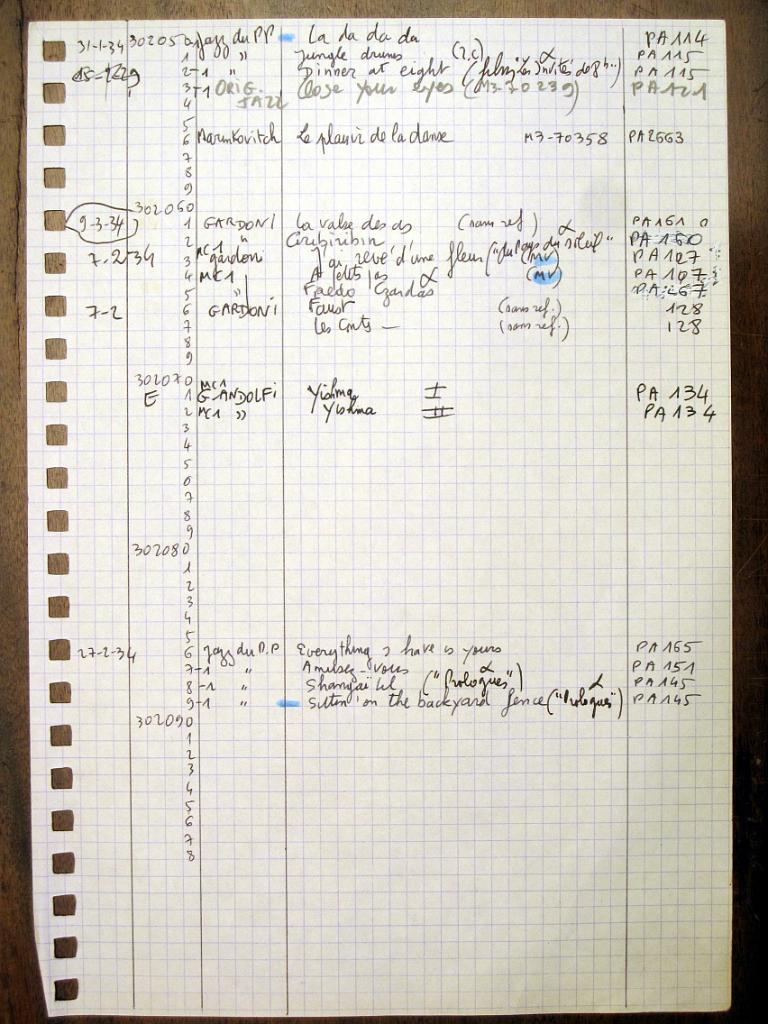 31-1-34 302050 Jazz du P.P La da da da PA114
1 " Jungle drums (2,C) α PA115
2-1 " Dinner at eight (film "Les Invités de 8h...) PA115
3-1 ORIG. JAZZ Close your eyes (M3-70239) PA121
4
5
6 Marinkovitch Le plaisir de la danse M3-70358 PA2663
7
8
9
302060
9-3-34 1 GARDONI La valse des as (sans ref) PA161 0
2 " Ciribiribin α PA160
7-2 34 3 MC1 gardoni J'ai rêvé d'une fleur ("Au Pays du Soleil" (MV) PA107
4 MC1 A petits pas (MV) PA107
5 " Czardas α
7-2 6 GARDONI Faust (sans ref.) 128
7 Les (sans ref.) 128
8
9
302070 MC1
E 1 GANDOLFI Yishma I PA 134
2 MC1 " Yishma II PA 134
3
4
5
6
7
8
9
302080
1
2
3
4
5
27-2-34 6 Jazz du P.P Everything I have is yours PA165
7-1 " Amusez-vous α PA151
8-1 " Shangaï Lil ("Prologues") α PA145
9-1 " Sittin' on the backyard fence ("Prologues") PA145
302090
1
2
3
4
5
6
7
8